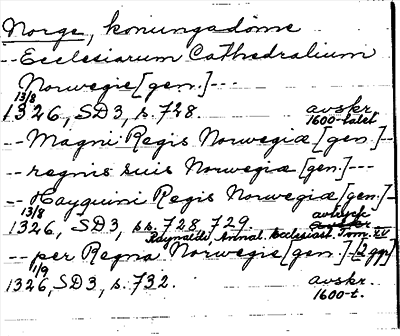 Norge, konungadöme
-- Ecclesiarum Cathedralium
Norwegie [gen.] ---
13/8
1326, SD3, s. 728. avskr.
1600-talet
-- Magni Regis Norwegiæ [gen.] --
-- regnis suis Norwegiæ [gen.] ---
-- Hayquini Regis Norwegiæ [gen.] --
13/8 avtryck
1326, SD3, ss. 728, 729. avskr.
Raynaldi Annal. Ecclesiast. Tom. XV
-- per Regna Norwegie [gen.] -- [2 ggr]
1/9
1326, SD3, s. 732. avskr.
1600-t.